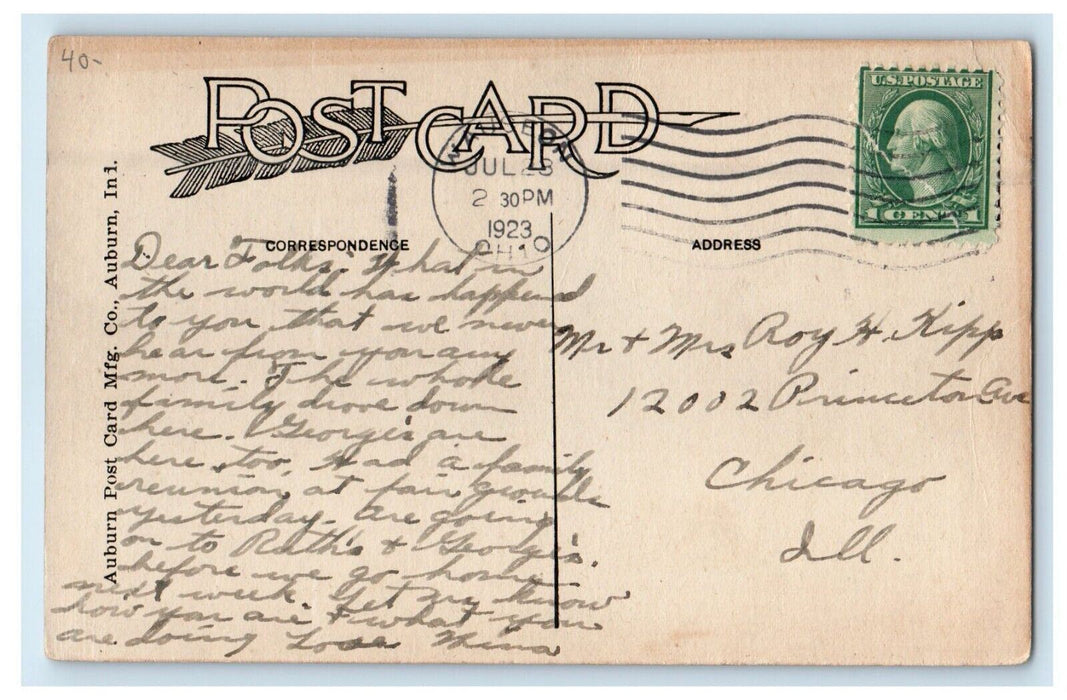 40-
POST CARD
U.S. POSTAGE
1 CENT 1
JUL 23
2 30 PM
1923
OHIO
CORRESPONDENCE
ADDRESS
Auburn Post Card Mfg. Co., Auburn, Ind.
Dear Folks. What in
the world has happened
to you that we never
hear from you any
more. The whole
family drove down
here. George's are
here too, Had a family
reunion at fair grounds
yesterday. Are going
on to Ruth's & George's.
before we go home
next week. Let my know
how you are & what you
are doing Love Mina
Mr & Mrs Roy H. Kipp
12002 Princeton Ave
Chicago
Ill.